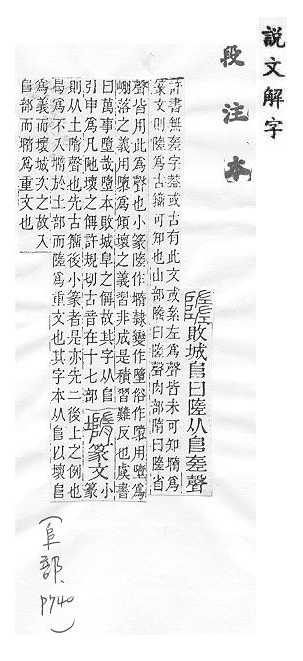 說文解字
段注本
敗城𨸏曰隓从𨸏𡐦聲
許書無𡐦字蓋或古有此文或絫左爲聲皆未可知隓爲
篆文則隓爲古籒可知也山部曰隓聲肉部隋曰隓省
聲皆用此爲聲也小篆隓作㙐隸變作墮俗作隳用墮爲
崩落之義用隳爲傾壞之義習非成是積習難反也虞書
曰萬事墮哉墮本敗城𨸏之偁故其字从𨸏
引申爲凡阤壞之偁許規切古音在十七部
篆文
小篆
則从土隋聲也先古籒後小篆者是亦先二後上之例也
曷爲不入㙐於土部而隓爲重文也其字本从𨸏以壞𨸏
爲義而壞城次之故入
𨸏部而㙐爲重文也
(𨸏部、P740)